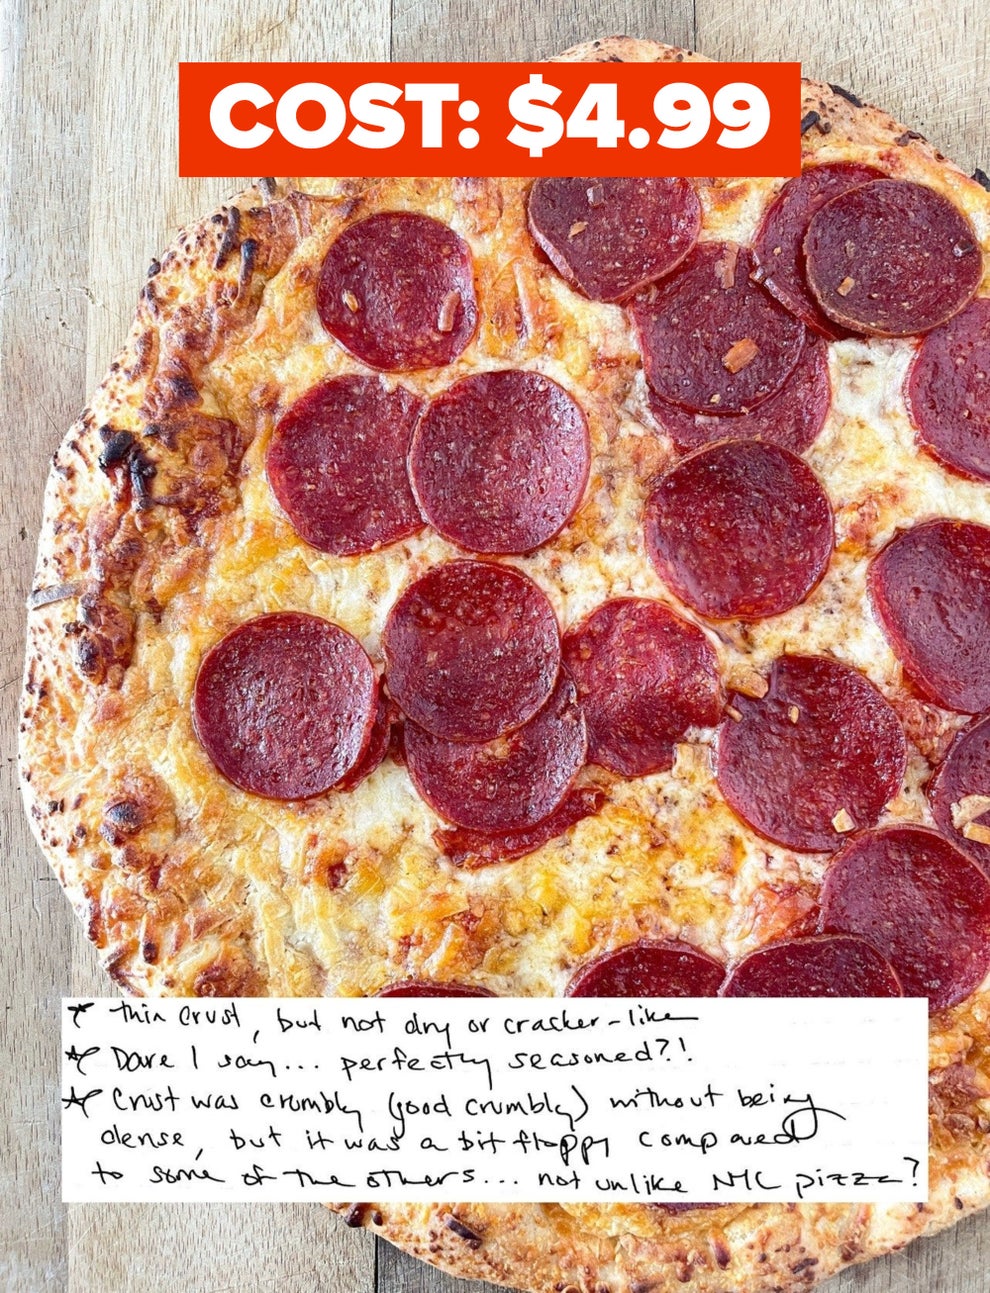 COST: $4.99
* Thin crust, but not dry or cracker-like
* Dare I say... perfectly seasoned?!
* Crust was crumbly (good crumbly) without being
dense, but it was a bit floppy compared
to some of the others... not unlike NYC pizza?